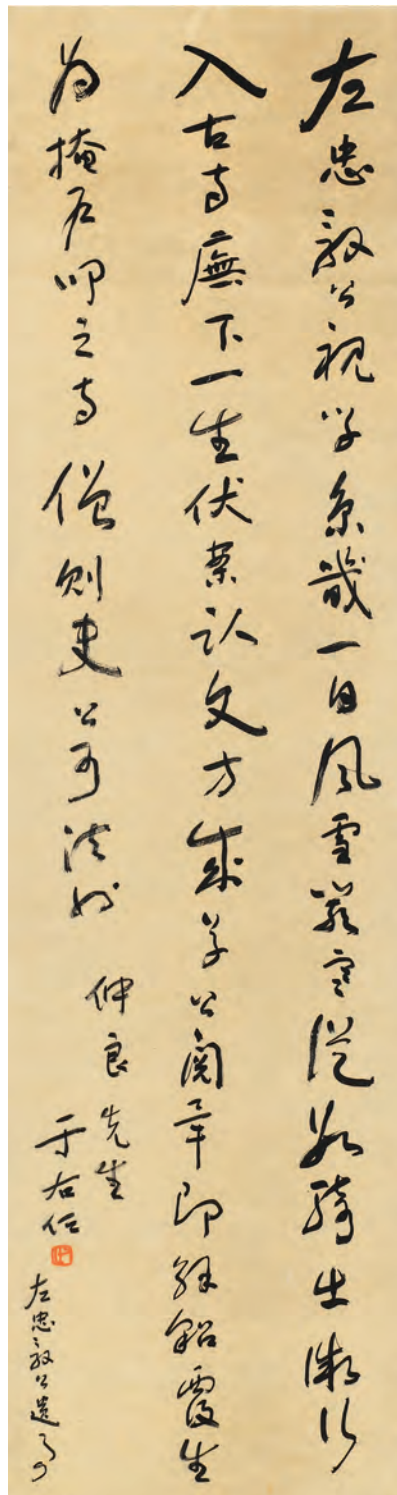 左忠毅公視学京畿一日風雪嚴寒從數騎出微行
入古寺廡下一生伏案臥文方成草公閱畢即解貂覆生
為掩戶叩之寺僧則史公可法也
仲良先生
于右任
左忠毅公遺事